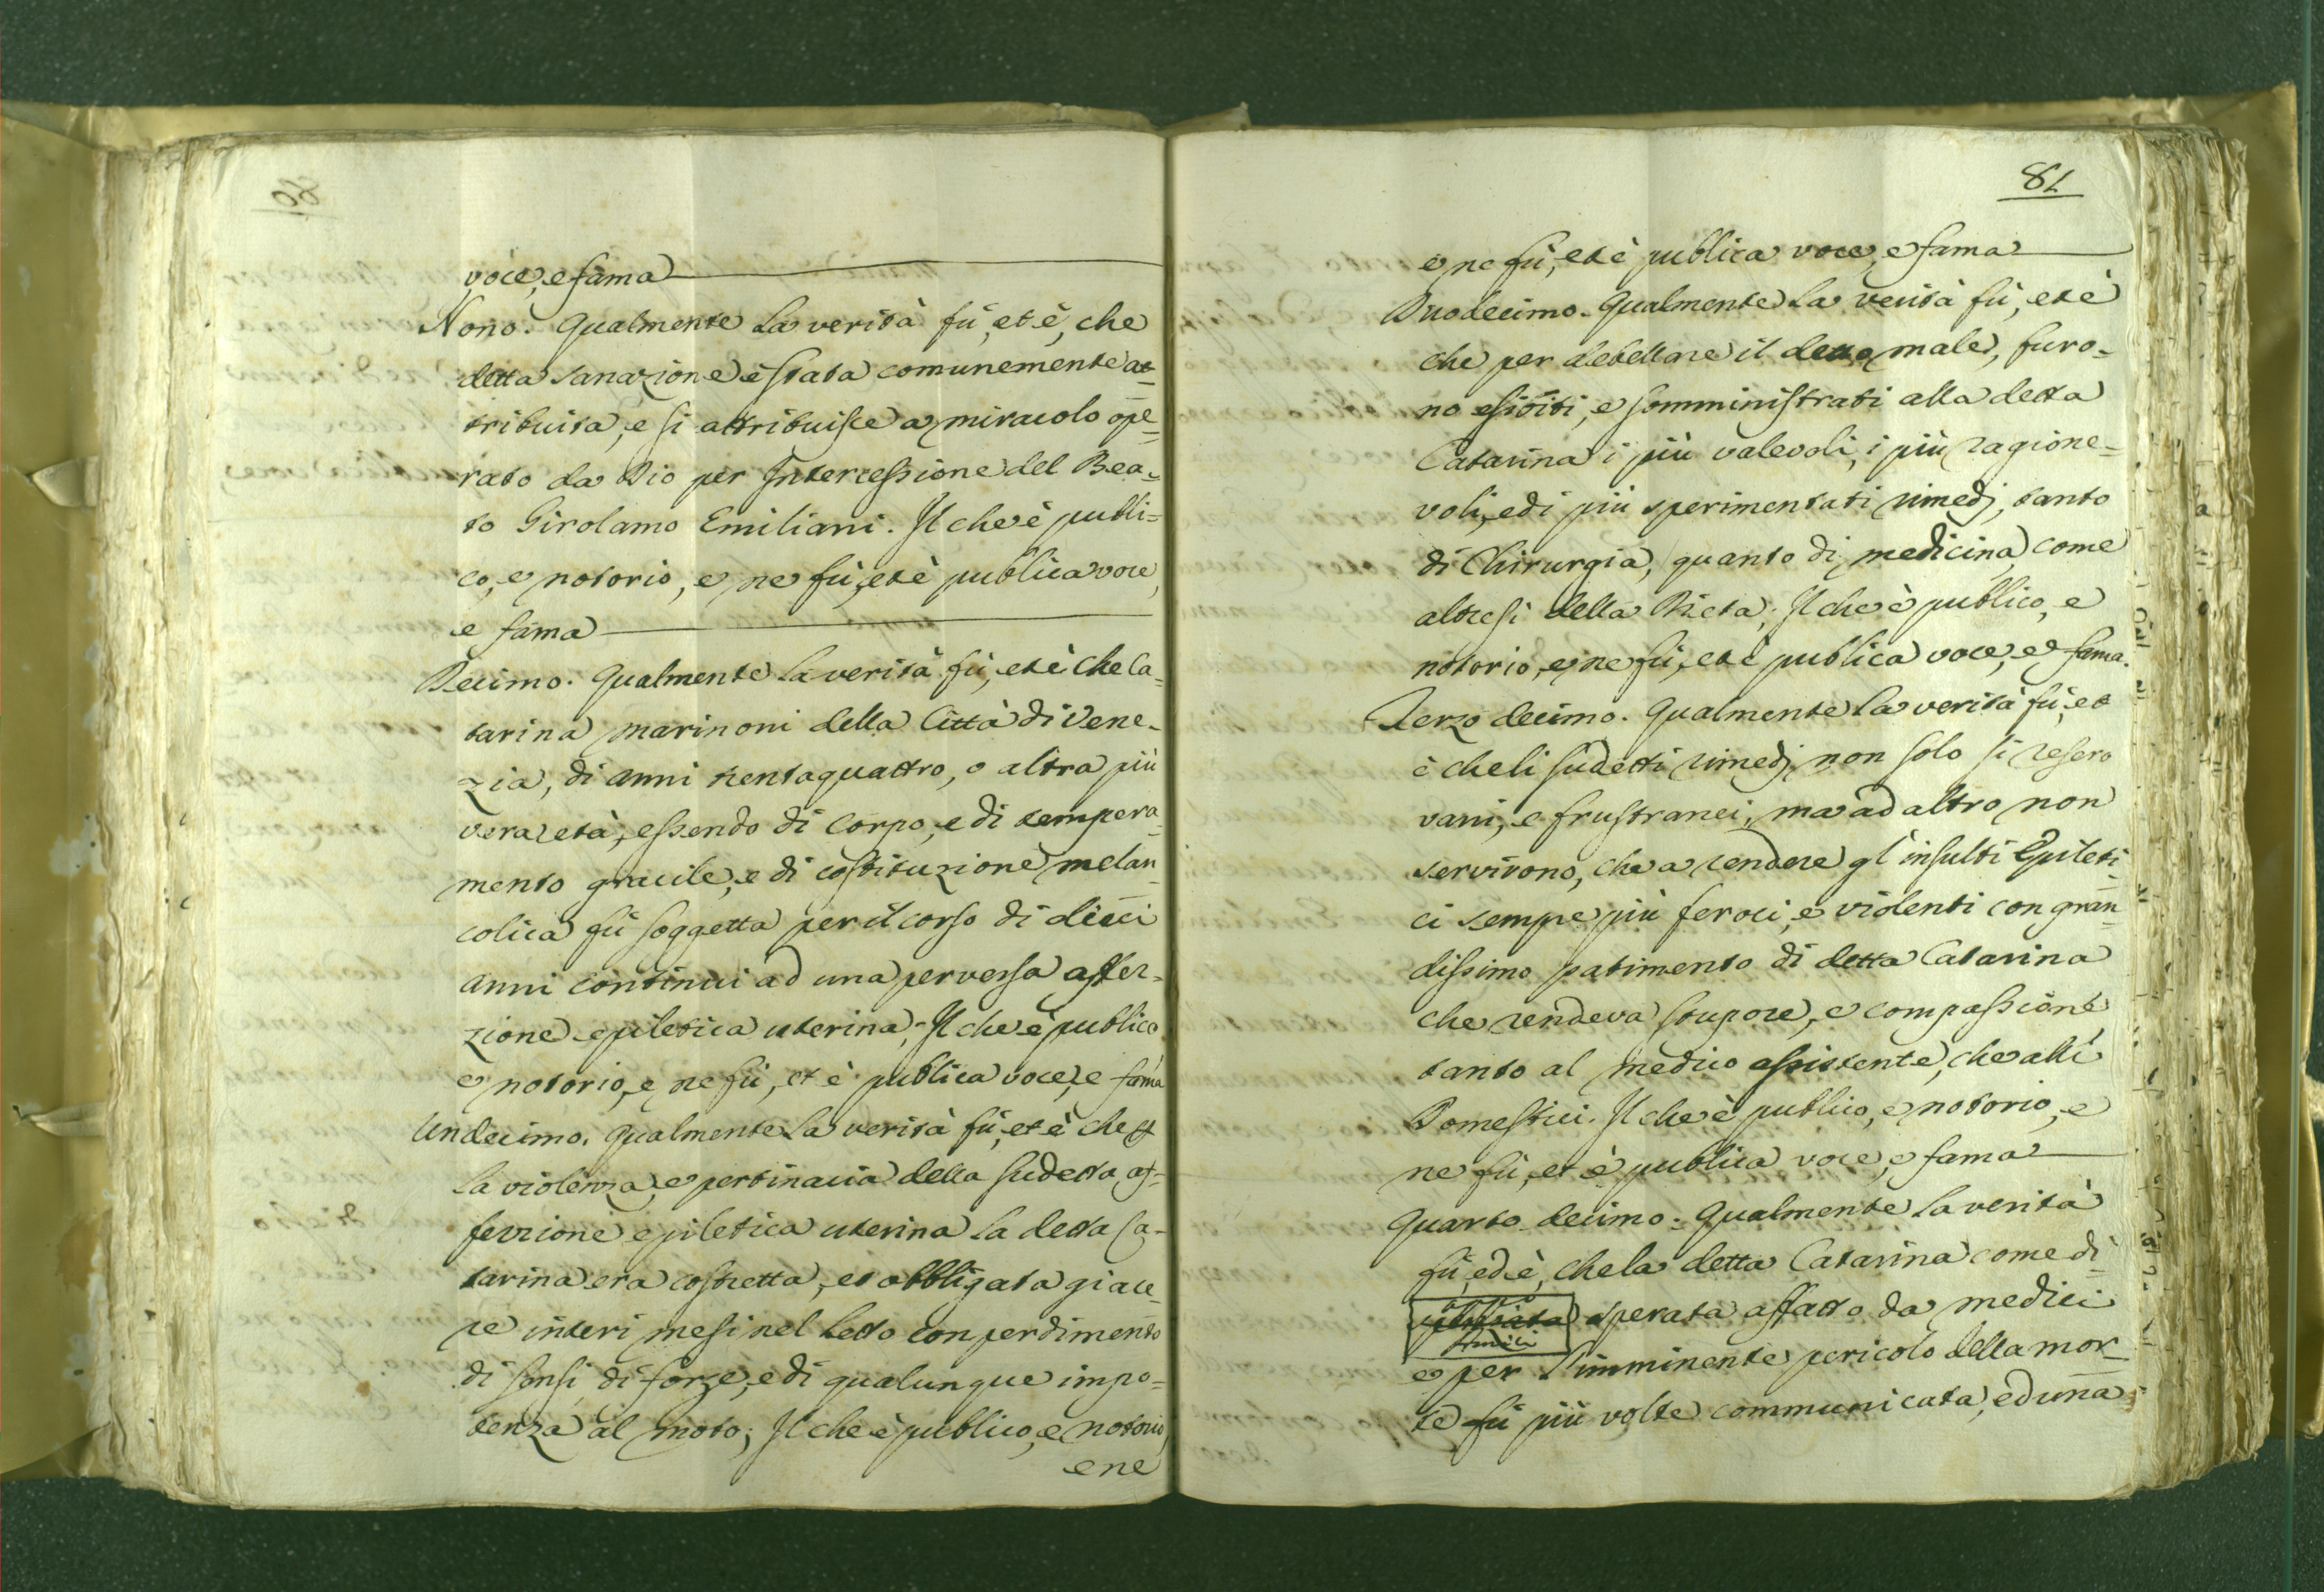 voce, e fama
Nono. Qualmente la verità fù, et è, che
detta sanazione è stata comunemente at=
tribuita, e si attribuisce a miracolo ope=
rato da Dio per Intercessione del Bea=
to Girolamo Emiliani. Il che è publi=
co, e notorio, e ne fù, et è publica voce,
e fama
Decimo. Qualmente la verità fù, et è che Ca=
tarina Marinoni della Città di Vene=
zia, di anni trentaquattro, o altra più
vera età, essendo di corpo, e di tempera=
mento gracile, e di costituzione melan=
colica fù soggetta per il corso di dieci
anni continui ad una perversa affez=
zione epiletica uterina; Il che è publico
e notorio, e ne fù, et è publica voce, e fama
Undecimo. Qualmente la verità fù, et è che
la violenza, e pertinacia della sudetta af=
fezzione epiletica uterina la detta Ca=
tarina era costretta, et obbligata giace=
re interi mesi nel letto con perdimento
di sensi, di forze, e di qualunque impo=
tenza al moto; Il che è publico, e notorio
e ne
81
e ne fù, et è publica voce, e fama
Duodecimo. Qualmente la verità fù, et è
che per debellare il detto male, furo=
no esibiti, e somministrati alla detta
Catarina i più valevoli, i più ragione=
voli, ed i più sperimentati rimedj, tanto
di Chirurgia, quanto di medicina, come
altresi della Dieta; Il che è publico, e
notorio, e ne fù, et è publica voce, e fama.
Terzo decimo. Qualmente la verità fù, et
è che li sudetti rimedj non solo si resero
vani, e frustranei, ma ad altro non
servirono, che a rendere gl'insulti Epileti=
ci sempre più feroci, e violenti con gran=
dissimo patimento di detta Catarina
che rendeva stupore, e compassione
tanto al medico assistente, che alli
Domestici. Il che è publico, e notorio, e
ne fù, et è publica voce, e fama
Quarto decimo. Qualmente la verità
fù, ed è, che la detta Catarina come di=
sperata affatto da medici
e per l'imminente pericolo della mor=
te fù più volte communicata, ed una